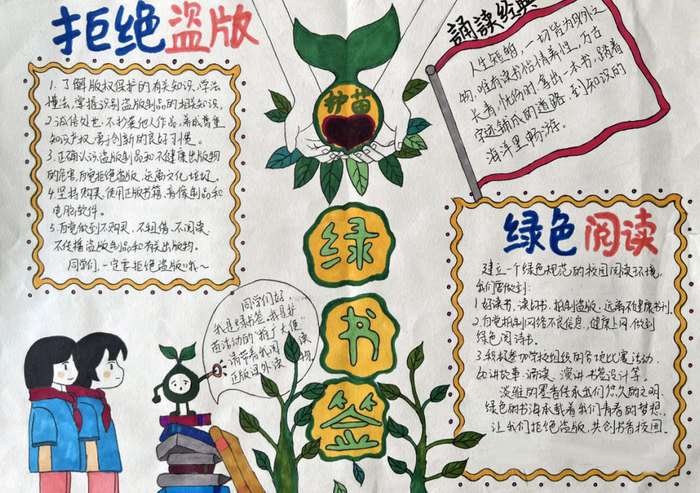 拒绝盗版
1.了解版权保护的有关知识,学法
懂法,掌握识别盗版制品的相关知识。
2.诚信创作,不抄袭他人作品,养成尊重
知识产权,勇于创新的良好习惯。
3.正确认识盗版制品和不健康出版物
的危害,自觉拒绝盗版,远离文化垃圾。
4.坚持购买、使用正版书籍、音像制品和
电脑软件。
5.自觉做到不购买、不租借、不阅读、
不传播盗版制品和有害出版物。
同学们,一定要拒绝盗版哦~
护苗
诵读经典
人生短暂,一切皆为身外之
物,唯有读书怡情养性,万古
长青,忙份时拿出一本书,踏着
字迹铺成的道路,到知识的
海洋里畅游。
绿
书
签
同学们好,
我是绿书签,我是护
苗活动的“推广大使”
请带着我阅读
正版课外读物
绿色阅读
建立一个绿色规范的校园阅读环境,
我们需做到:
1.好读书、读好书、抵制盗版、远离不健康书刊。
2.自觉抵制网络不良信息,健康上网,做到
绿色阅读书。
3.积极参加学校组织的各项比赛活动,
如讲故事、诵读、演讲、书签设计等。
淡雅的墨香传承我们悠久的文明,
绿色的书海承载着我们青春的梦想,
让我们拒绝盗版,共创书香校园。